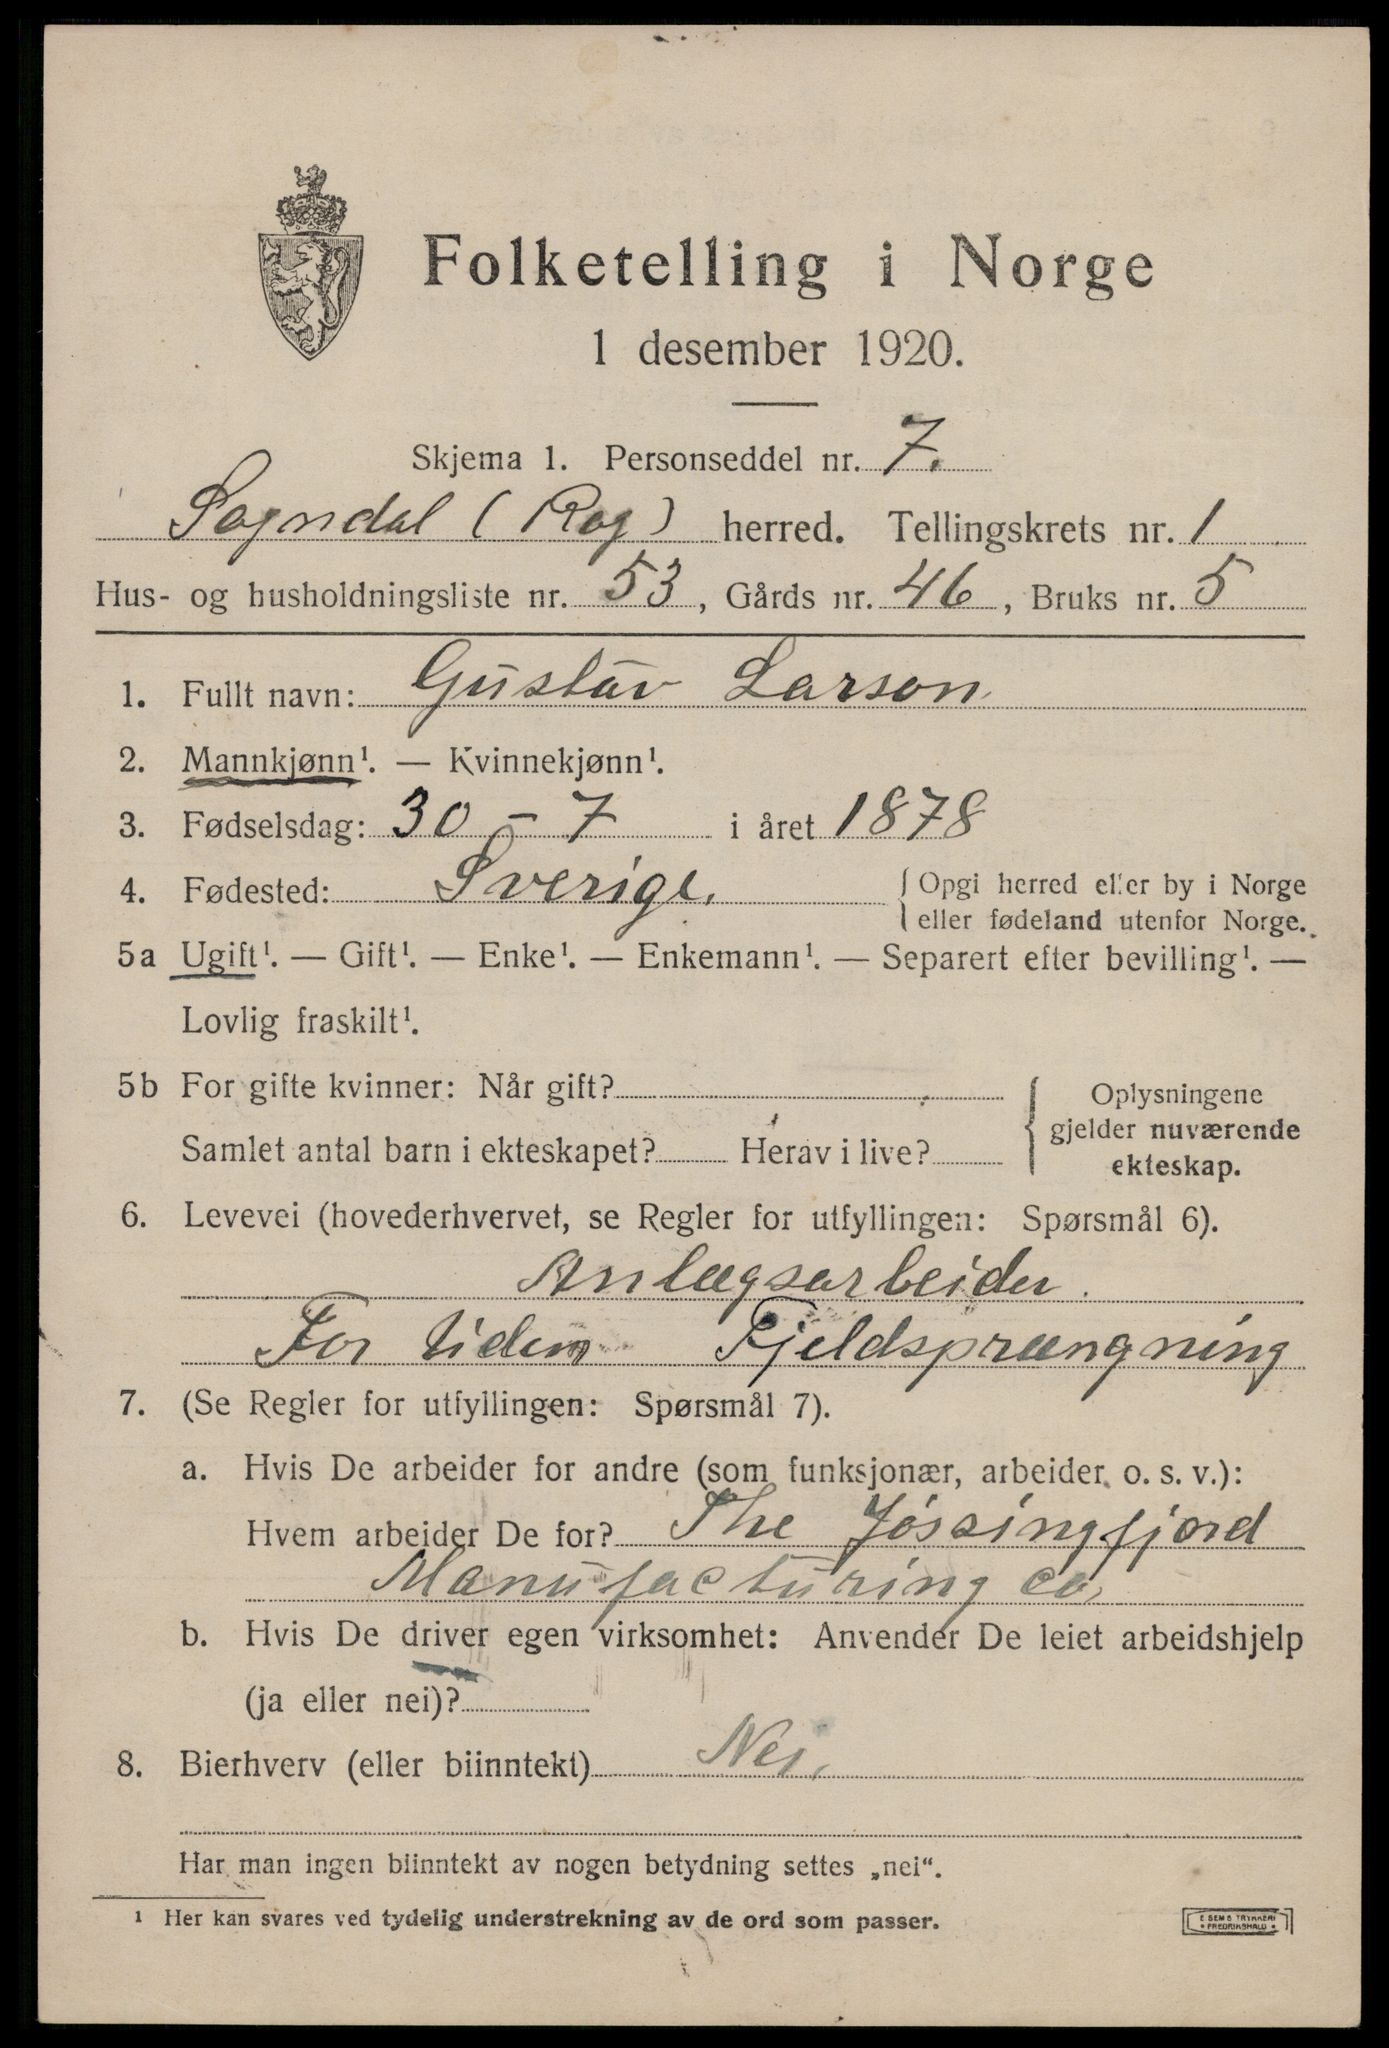 Folketelling i Norge
1 desember 1920.
Skjema 1. Personseddel nr. 7.
Sogndal (Rog) herred. Tellingskrets nr. 1
Hus- og husholdningsliste nr. 53, Gårds nr. 46, Bruks nr. 5
1. Fullt navn: Gustav Larson
2. Mannkjønn¹. — Kvinnekjønn¹.
3. Fødselsdag: 30 - 7 i året 1878
4. Fødested: Sverige. { Opgi herred eller by i Norge
eller fødeland utenfor Norge.
5a Ugift¹. — Gift¹. — Enke¹. — Enkemann¹. — Separert efter bevilling¹. —
Lovlig fraskilt¹.
5b For gifte kvinner: Når gift?
Samlet antal barn i ekteskapet? Herav i live?
Oplysningene
gjelder nuværende
ekteskap.
6. Levevei (hovederhvervet, se Regler for utfyllingen: Spørsmål 6).
Anlægsarbeider.
For tiden Fjeldsprængning
7. (Se Regler for utfyllingen: Spørsmål 7).
a. Hvis De arbeider for andre (som funksjonær, arbeider o. s. v.):
Hvem arbeider De for? The Jøssingfjord
Manufacturing co,
b. Hvis De driver egen virksomhet: Anvender De leiet arbeidshjelp
(ja eller nei)?
8. Bierhverv (eller biinntekt) Nei.
Har man ingen biinntekt av nogen betydning settes „nei".
¹ Her kan svares ved tydelig understrekning av de ord som passer.
E SEMS TRYKKERI
FREDRIKSHALD